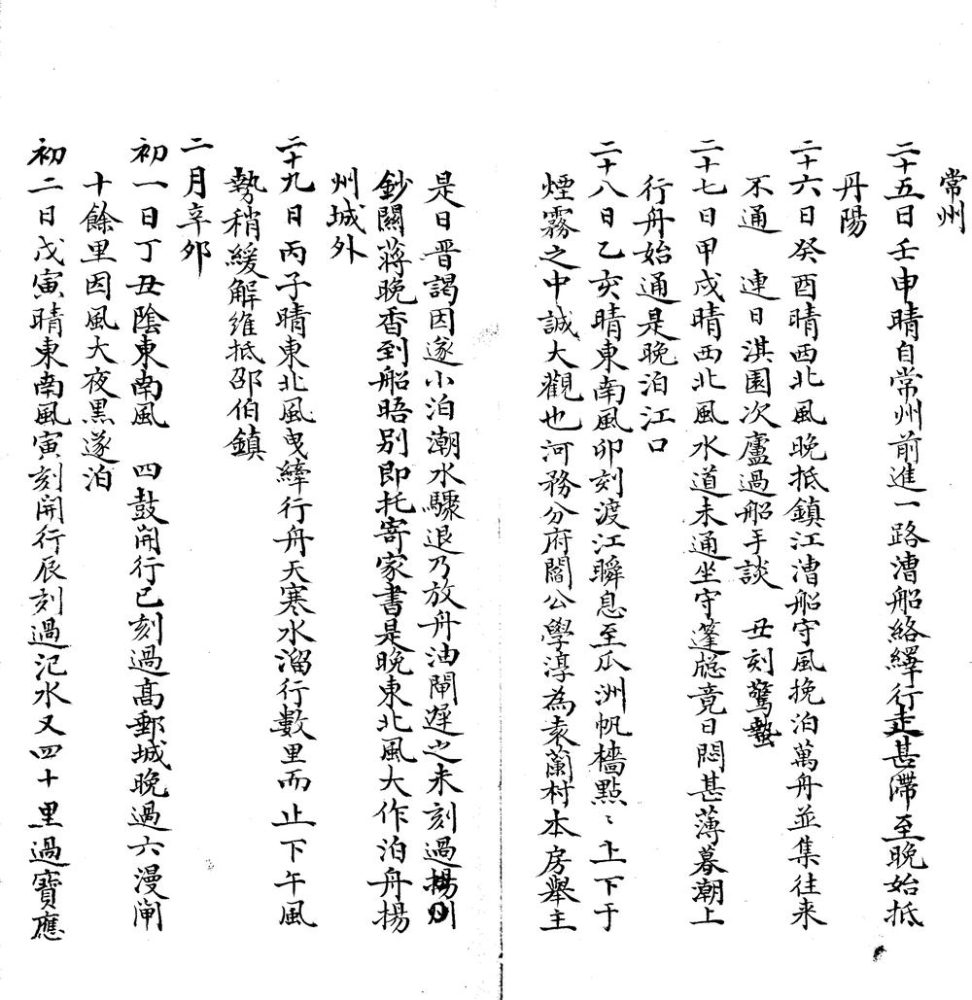 常州
二十五日壬申晴自常州前進一路漕船絡繹行走甚滯至晚始抵
丹陽
二十六日癸酉晴西北風晚抵鎮江漕船守風挽泊萬舟並集往来
不通　連日淇園次廬過船手談　丑刻驚蟄
二十七日甲戌晴西北風水道未通坐守篷牕竟日悶甚薄暮潮上
行舟始通是晚泊江口
二十八日乙亥晴東南風卯刻渡江瞬息至瓜洲帆檣點〻上下于
煙霧之中誠大觀也河務分府閻公學淳為袁蘭村本房舉主
是日晋謁因遂小泊潮水驟退乃放舟油閘遲之未刻過揚州
鈔關蔣晚香到船晤别即托寄家書是晚東北風大作泊舟揚
州城外
二十九日丙子晴東北風曳縴行舟天寒水溜行數里而止下午風
勢稍緩解維抵邵伯鎮
二月辛夘
初一日丁丑陰東南風　四鼓開行巳刻過高郵城晚過六漫閘
十餘里因風大夜黑遂泊
初二日戊寅晴東南風寅刻開行辰刻過汜水又四十里過寶應